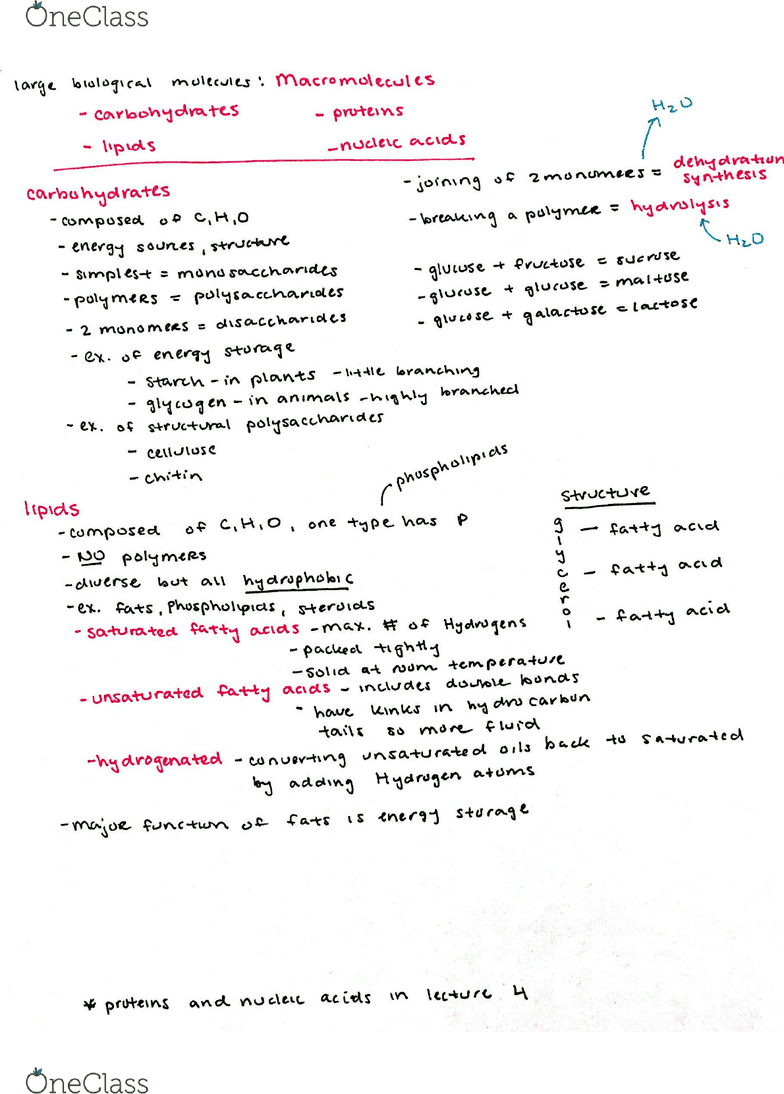 OneClass
large biological molecules: Macromolecules
- carbohydrates - proteins
- lipids - nucleic acids
H₂O
- joining of 2 monomers = dehydration synthesis
- breaking a polymer = hydrolysis
H₂O
- glucose + fructose = sucrose
- glucose + glucose = maltose
- glucose + galactose = lactose
carbohydrates
- composed of C, H, O
- energy sources, structure
- simplest = monosaccharides
- polymers = polysaccharides
- 2 monomers = disaccharides
- ex. of energy storage
- starch - in plants - little branching
- glycogen - in animals - highly branched
- ex. of structural polysaccharides
- cellulose
- chitin
phospholipids
lipids
- composed of C, H, O, one type has P
- NO polymers
- diverse but all hydrophobic
- ex. fats, Phospholipids, steroids
- saturated fatty acids - max. # of Hydrogens
- packed tightly
- solid at room temperature
- unsaturated fatty acids - includes double bonds
- have kinks in hydrocarbon
tails so more fluid
- hydrogenated - converting unsaturated oils back to saturated
by adding Hydrogen atoms
- major function of fats is energy storage
structure
glycerol
- fatty acid
- fatty acid
- fatty acid
* proteins and nucleic acids in lecture 4
OneClass